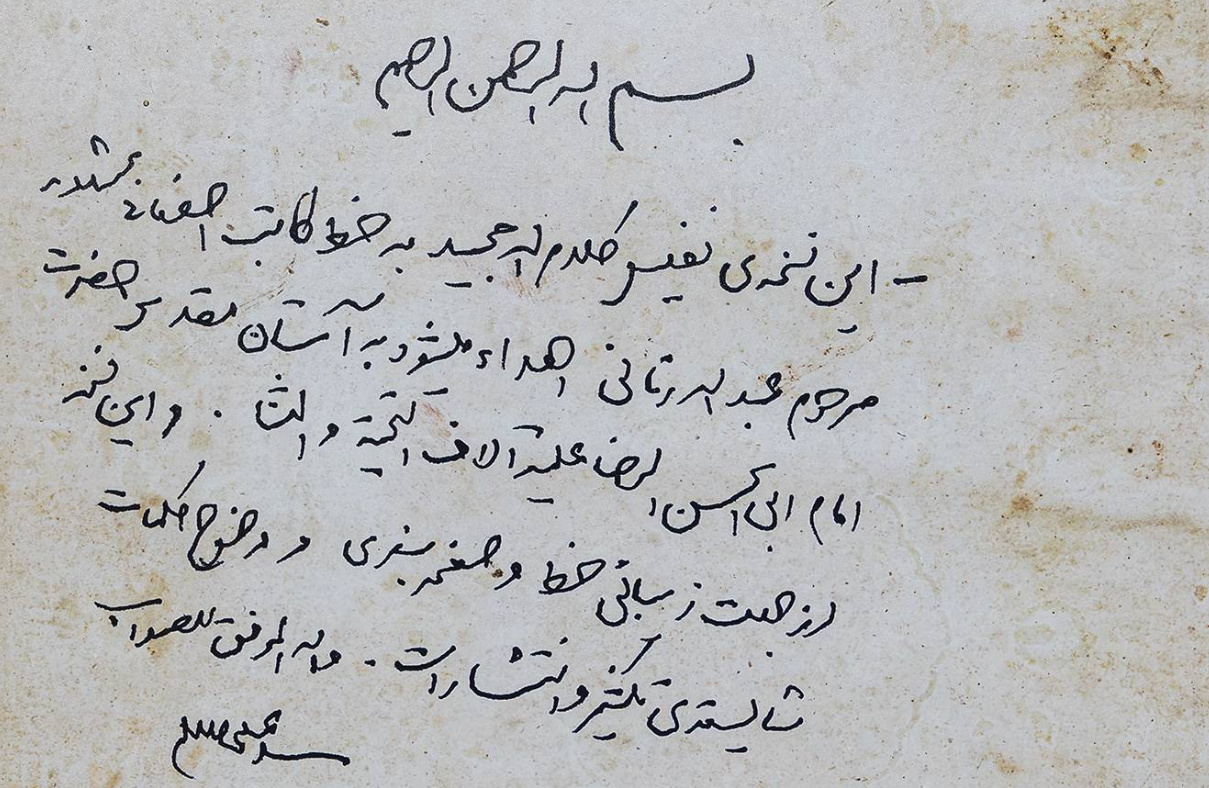 بسم الله الرحمن الرحیم
- این نسخه‌ی نفیس کلام الله مجید به خط کاتب اصفهانی
مرحوم عبدالله رنانی اهداء میشود به آستان مقدس حضرت
امام ابی الحسن الرضا علیه آلاف التحیة والثنا . و این نسخه
از جهت زیبائی خط و صفحه بندی و وضوح کلمات
شایسته‌ی تکثیر و انتشار است . والله الموفق للصواب